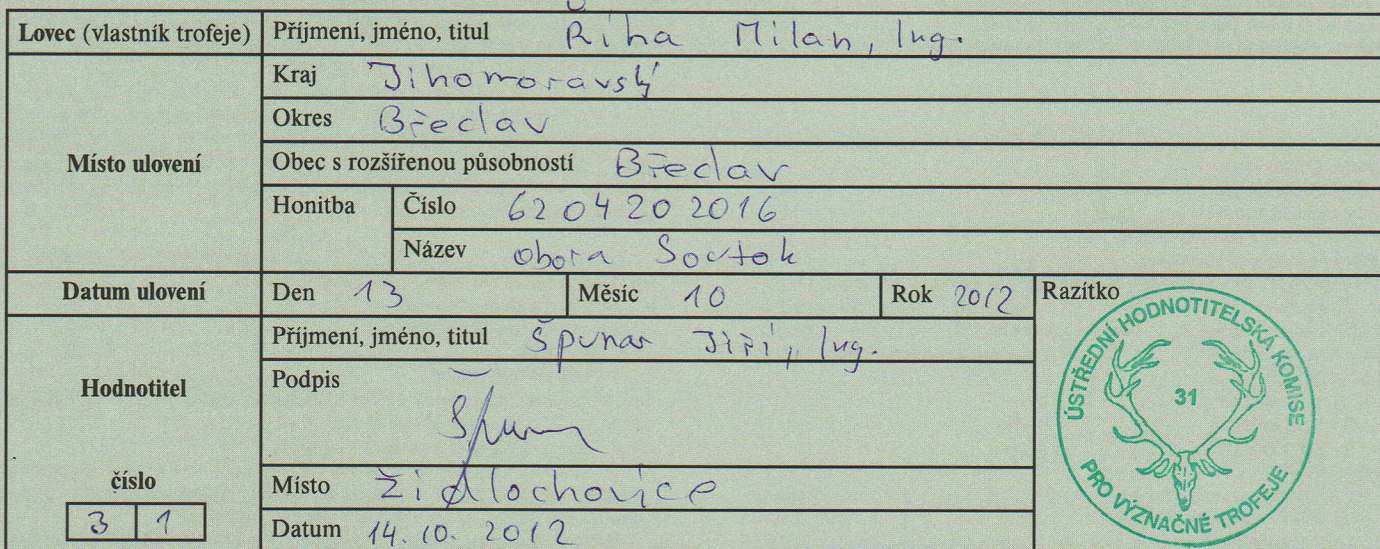 Lovec (vlastník trofeje) Příjmení, jméno, titul Říha Milan, Ing.
Místo ulovení
Kraj Jihomoravský
Okres Břeclav
Obec s rozšířenou působností Břeclav
Honitba Číslo 6204202016
Název obora Soutok
Datum ulovení Den 13 Měsíc 10 Rok 2012
Razítko
Hodnotitel
Příjmení, jméno, titul Špunar Jiří, Ing.
Podpis
číslo
31
Místo Židlochovice
Datum 14.10.2012
ÚSTŘEDNÍ HODNOTITELSKÁ KOMISE
31
PRO VÝZNAČNÉ TROFEJE